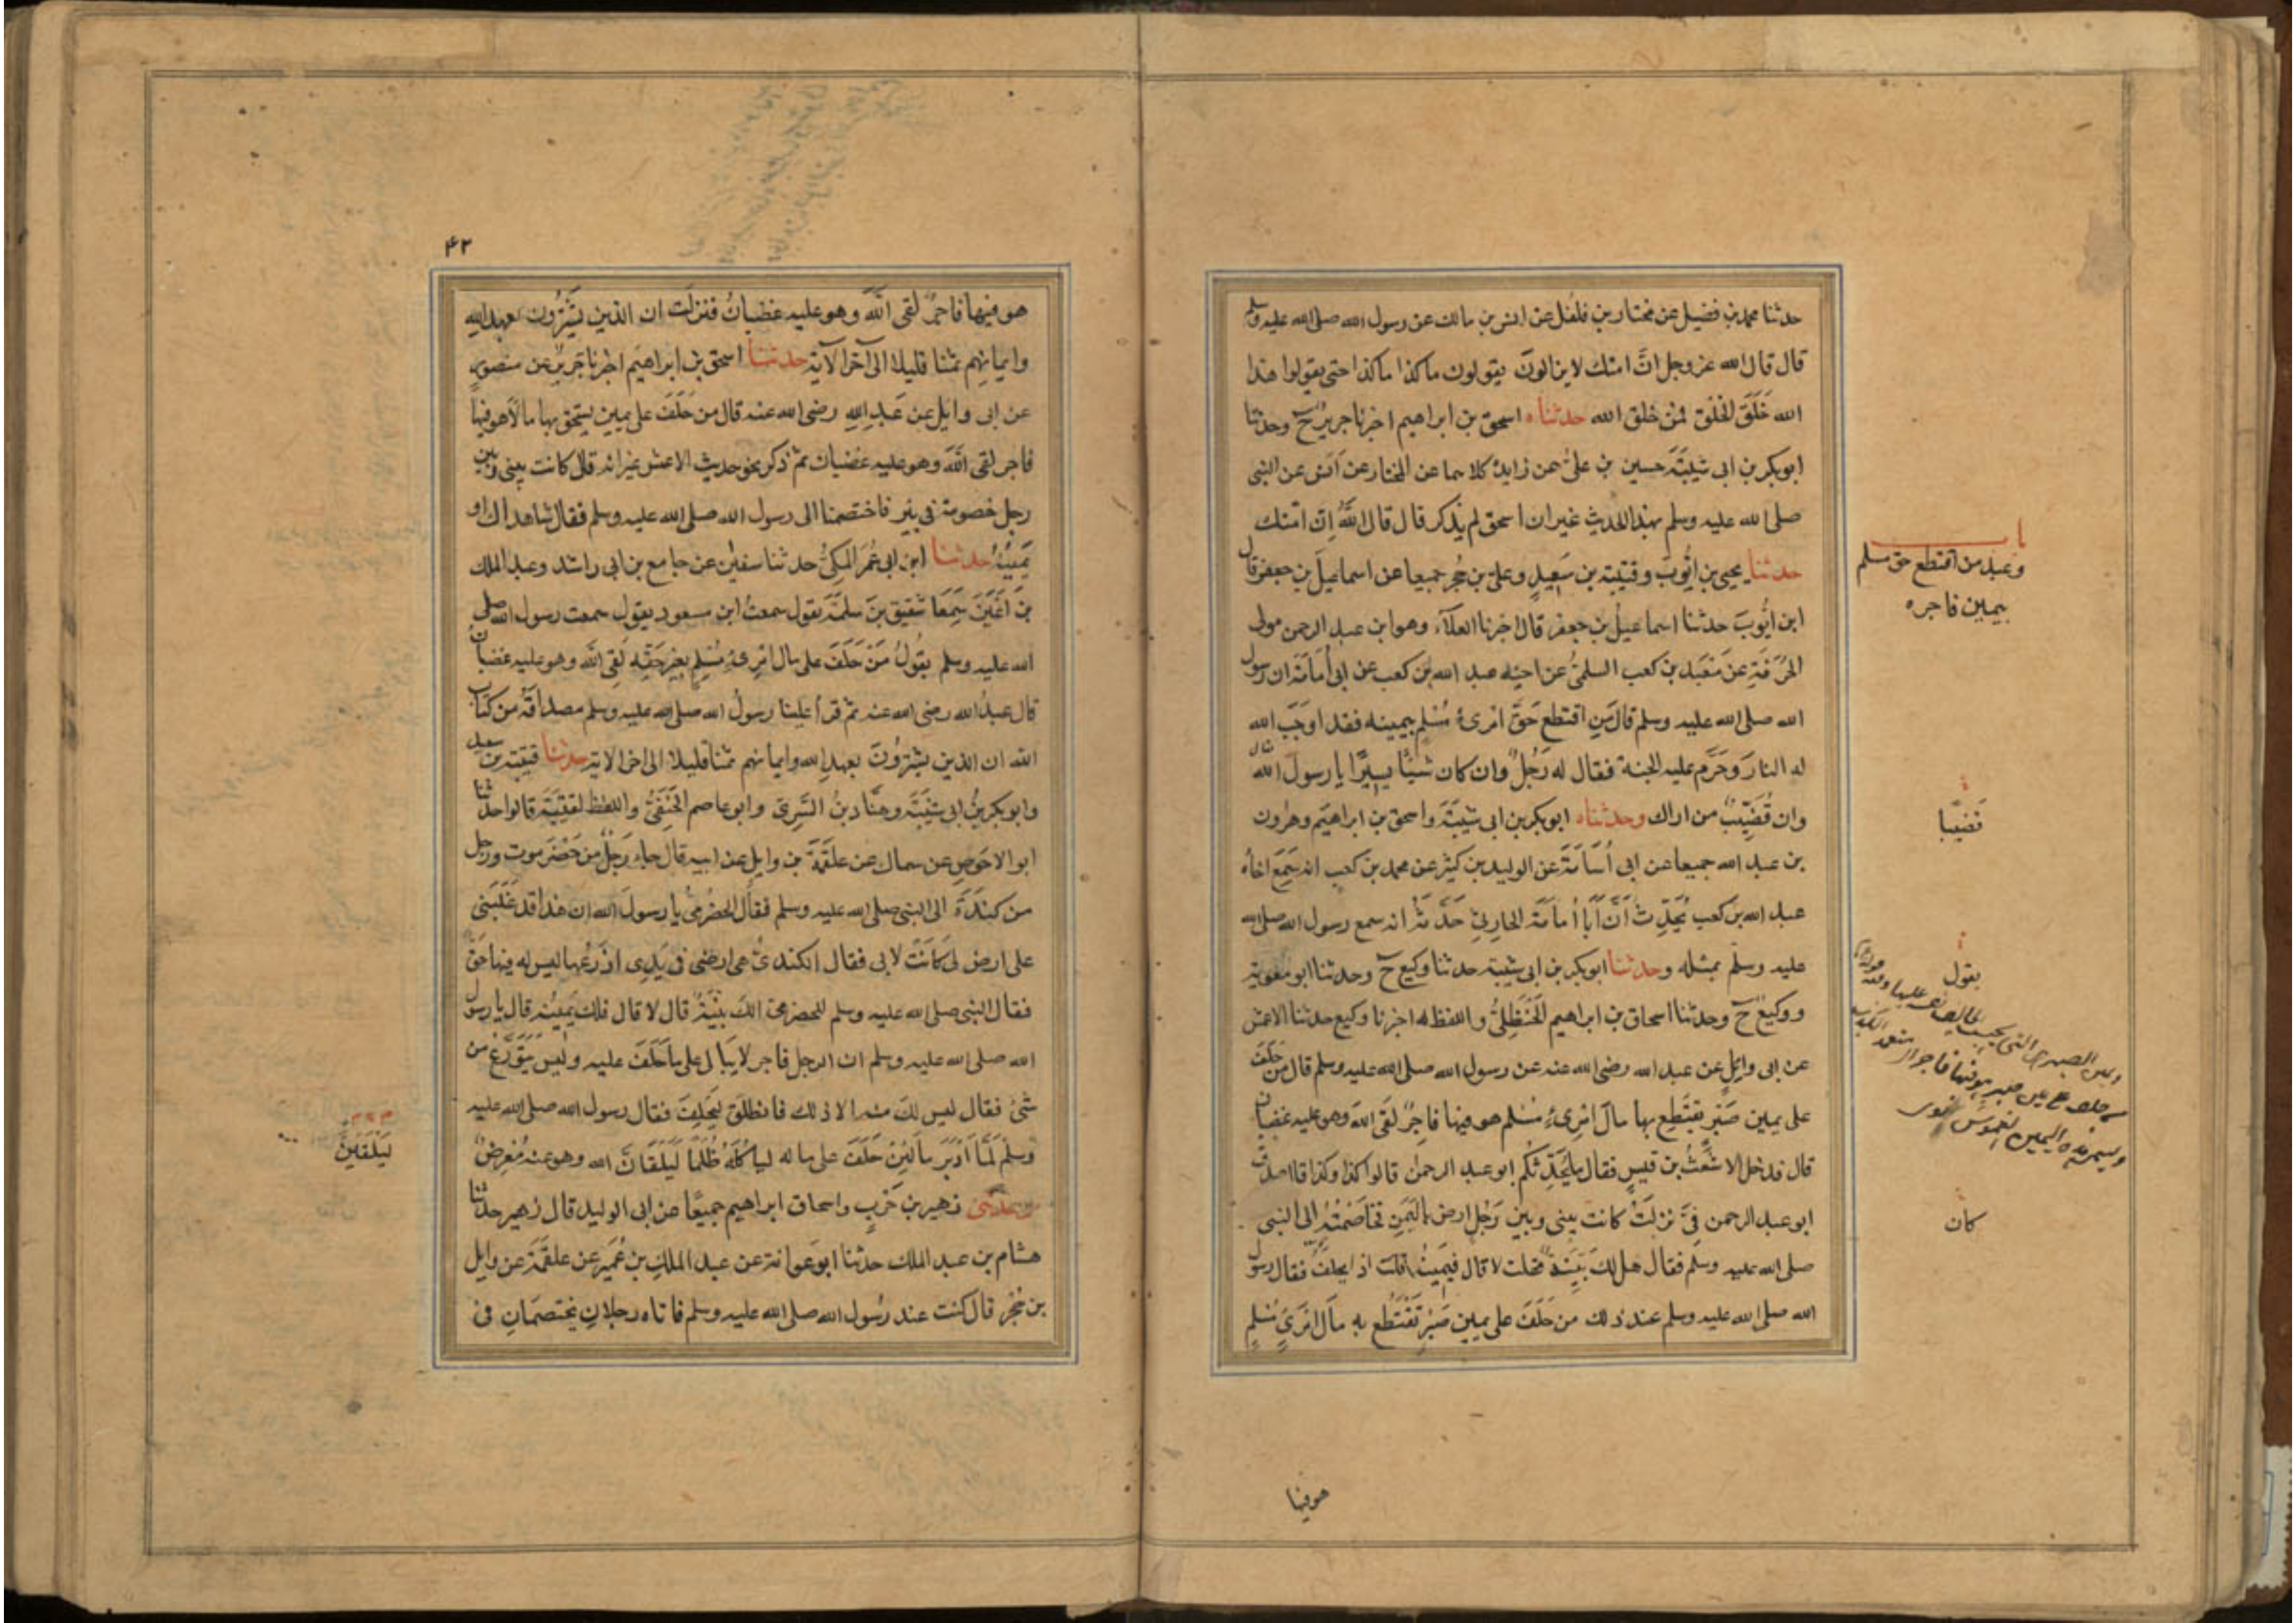 حدثنا محمد بن فضيل عن مختار بن فلفل عن انس بن مالك عن رسول الله صلى الله عليه وسلم
قال قال الله عز وجل انَّ امتك لا يزالون يقولون ما كذا ما كذا حتى يقولوا هذا
الله خَلَقَ الخلق فمن خلق الله حدثناه اسحق بن ابراهيم اخبرنا جرير ح وحدثنا
ابوبكر بن ابى شيبَةَ حسين بن علىّ عن زايدة كلاهما عن المختار عن انس عن النبى
صلى الله عليه وسلم بهذا الحديث غير ان اسحق لم يذكر قال قال اللّٰهُ اِنّ امّتك
حدثنا يحيى بن ايُّوبَ وقتيبة بن سَعِيدٍ وعلىّ بن حُجر جميعا عن اسماعيل بن جعفر قال
ابن ايُّوبَ حدثنا اسماعيلُ بن جعفر قال اخبرنا العلآء وهو ابن عبد الرحمن مولى
الحُرَقَةِ عن مَعْبَد بن كعب السلمىّ عن اخيه عبد الله بن كعب عن ابى اُمَامَةَ ان رسول
الله صلى الله عليه وسلم قال مَنِ اقتطع حَقَّ امرىءٍ مُسْلم بيمينه فقد اوجَبَ الله
له النارَ وحَرَّم عليه الجنة فقال له رَجُلٌ وان كان شيئًا يسيرًا يا رسول الله قال
وان قَضِيْبٌ من اراك وحدثناه ابوبكر بن ابى شيبَةَ واسحق بن ابراهيم وهرون
بن عبد الله جميعا عن ابى اُسَامَةَ عن الوليد بن كثير عن محمد بن كعب انه سَمِعَ اخاه
عبد الله بن كعب يُحَدِّثُ اَنَّ اَبَا اُمَامَةَ الحارثىّ حَدَّثَهُ انه سمع رسول الله صلى الله
عليه وسلم بمثله وحدثنا ابوبكر بن ابى شيبة حدثنا وكيع ح وحدثنا ابو معوية
ووكيع ح وحدثنا اسحاق بن ابراهيم الحَنْظَلِىُّ واللفظ له اخبرنا وكيع حدثنا الاعمش
عن ابى وايل عن عبد الله رضى الله عنه عن رسول الله صلى الله عليه وسلم قال من حَلَفَ
على يمين صَبْرٍ يقتَطِع بها مالَ امْرِىءٍ مُسْلم هو فيها فاجِرٌ لَقَى الله وهو عليه غضبان
قال فدخل الاشْعَثُ بن قيسٍ فقال ما يُحَدِّثكم ابو عبد الرحمن قالوا كذا وكذا قال صدق
ابو عبد الرحمن فِىَّ نزلَتْ كانت بينى وبين رَجُلٍ ارض باليَمَنِ فخاصَمْتُهُ الى النبى
صلى الله عليه وسلم فقال هل لك بَيِّنَةٌ فقلت لا قال فيَمِينُهُ قلت اذًا يحلفَ فقال رسول
الله صلى الله عليه وسلم عند ذلك من حَلَفَ على يمين صَبْرٍ تَقْتَطِع به مالَ امْرِىءٍ مُسْلِمٍ
هو فيها
باب
وعيد من اقتطع حق مسلم
بيمين فاجره
قَضِيبًا
يقول
كان
۴۲
هو فيها فاجرٌ لقى اللَّهَ وهو عليه غضبانُ فنزلت ان الذين يشْتَرُون بعهد الله
وايمانِهم ثمنا قليلا الى آخر الآية حدثنا اسحق بن ابراهيم اخبرنا جريرٌ عن منصورٍ
عن ابى وايل عن عَبدِ اللهِ رضى الله عنه قال من حَلَفَ على يمينٍ يستحق بها مالًا هو فيها
فاجر لقى اللَّهَ وهو عليه غضبان ثم ذكر نحو حديث الاعمش غير انه قال كانت بينى وبين
رجل خصومة فى بئر فاختصمنا الى رسول الله صلى الله عليه وسلم فقال شاهداك او
يَمِينُهُ حدثنا ابن ابى عُمَرَ المكىُّ حدثنا سفين عن جامع بن ابى راشد وعبد الملك
بن اَعْيَنَ سَمِعَا شَقيق بنَ سلمَةَ يقول سمعتُ ابن مسعود يقول سمعت رسول الله صلى
الله عليه وسلم يقولُ مَنْ حَلَفَ على مال امْرِىءٍ مُسْلِم بغير حَقِّهِ لَقِىَ اللّٰه وهو عليه غضبانُ
قال عبدُ الله رضى الله عنه ثم قرأ علينا رسولُ الله صلى الله عليه وسلم مصداقَهُ من كتاب
الله ان الذين يشْتَرُونَ بعهدِ الله وايمانهم ثمنًا قليلا الى اخر الاية حدثنا قتيبة بن سعيد
وابوبكر بنُ ابى شيْبَةَ وهنَّاد بنُ السَّرِىّ وابو عاصم الحَنَفِىُّ واللفظ لقتيبَةَ قالوا حدثنا
ابو الاحوصِ عن سماك عن علقَمَةَ بن وايل عن ابيه قال جاءَ رَجُلٌ من حَضْرَموت ورجل
من كندَةَ الى النبى صلى الله عليه وسلم فقال الحضْرمىُّ يا رسولَ الله ان هذا قد غَلَبَنى
على ارض لى كانَتْ لابى فقال الكندىُّ هى ارضى فى يَدِى ازْرَعُها ليس له فيها حَقٌّ
فقال النبى صلى الله عليه وسلم للحضرمىّ الكَ بيِّنَةٌ قال لا قال فلك يَمِينُه قال يا رسول
الله صلى الله عليه وسلم ان الرجل فاجر لا يُبَالى على ما حَلَفَ عليه وليْسَ يَتَوَرَّعُ من
شىْءٍ فقال ليس لكَ منه الا ذلك فانطلَقَ ليَحْلِفَ فقال رسول الله صلى الله عليه
وسلم لمَّا اَدْبَرَ ما لَئِنْ حَلَفَ على ماله لياكُلَهُ ظُلْمًا لَيَلْقَانَّ الله وهو عنه مُعْرِضٌ
وحدثنى زهير بن حَرْبٍ واسحاق ابراهيم جميعًا عن ابى الوليد قال زهير حدثنا
هشام بن عبد الملك حدثنا ابو عوانة عن عبد الملكِ بن عُمَيْر عن علقَمَةَ عن وايل
بن حُجْر قال كنت عند رسُول الله صلى الله عليه وسلم فاتاه رجلانِ يختصمَانِ فى
لَيَلْقَيَنَّ